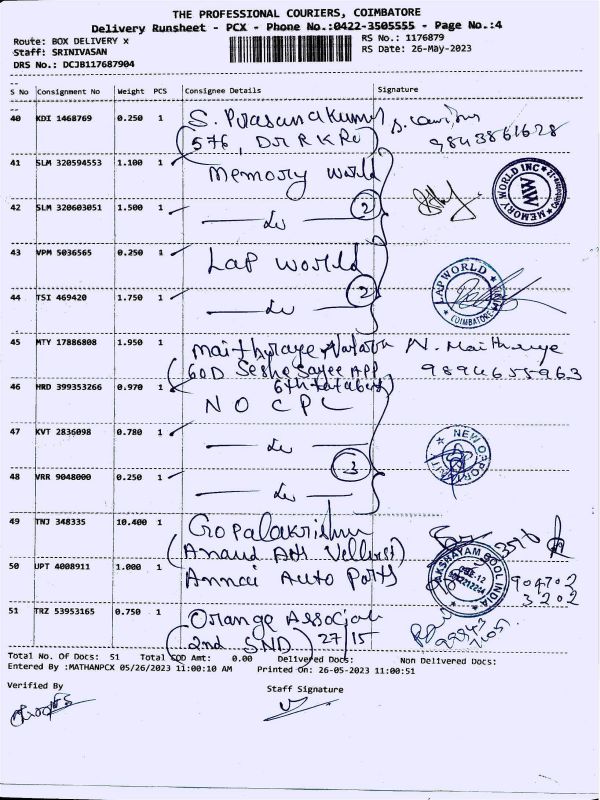 THE PROFESSIONAL COURIERS, COIMBATORE
Delivery Runsheet - PCX - Phone No.:0422-3505555 - Page No.:4
Route: BOX DELIVERY x
RS No.: 1176879
Staff: SRINIVASAN
RS Date: 26-May-2023
DRS No.: DCJB117687904
S No Consignment No Weight PCS Consignee Details Signature
40 KDI 1468769 0.250 1 S. Prasanakumar
(576, Dr R K Rd) 9843861628
41 SLM 320594553 1.100 1 Memory World
MEMORY WORLD INC
MW
42 SLM 320603051 1.500 1 — do — 2
43 VPM 5036565 0.250 1 Lap World
LAP WORLD
COIMBATORE
44 TSI 469420 1.750 1 — do — 2
45 MTY 17886808 1.950 1 Maithraye N. Maithraye
(60D Seshasayee APP 9894655963
46 HRD 399353266 0.970 1 NO CPC
47 KVT 2836098 0.780 1 — do —
48 VRR 9048000 0.250 1 — do — 3
49 TNJ 348335 10.400 1 Gopalakrishnan
(Anand
50 UPT 4008911 1.000 1 Annai Auto Parts
AKSHAYAM COOL INDIA
51 TRZ 53953165 0.750 1 Orange Associate
(2nd SND) 27/15
Total No. Of Docs: 51 Total COD Amt: 0.00 Delivered Docs: Non Delivered Docs:
Entered By :MATHANPCX 05/26/2023 11:00:10 AM Printed On: 26-05-2023 11:00:51
Verified By
Staff Signature